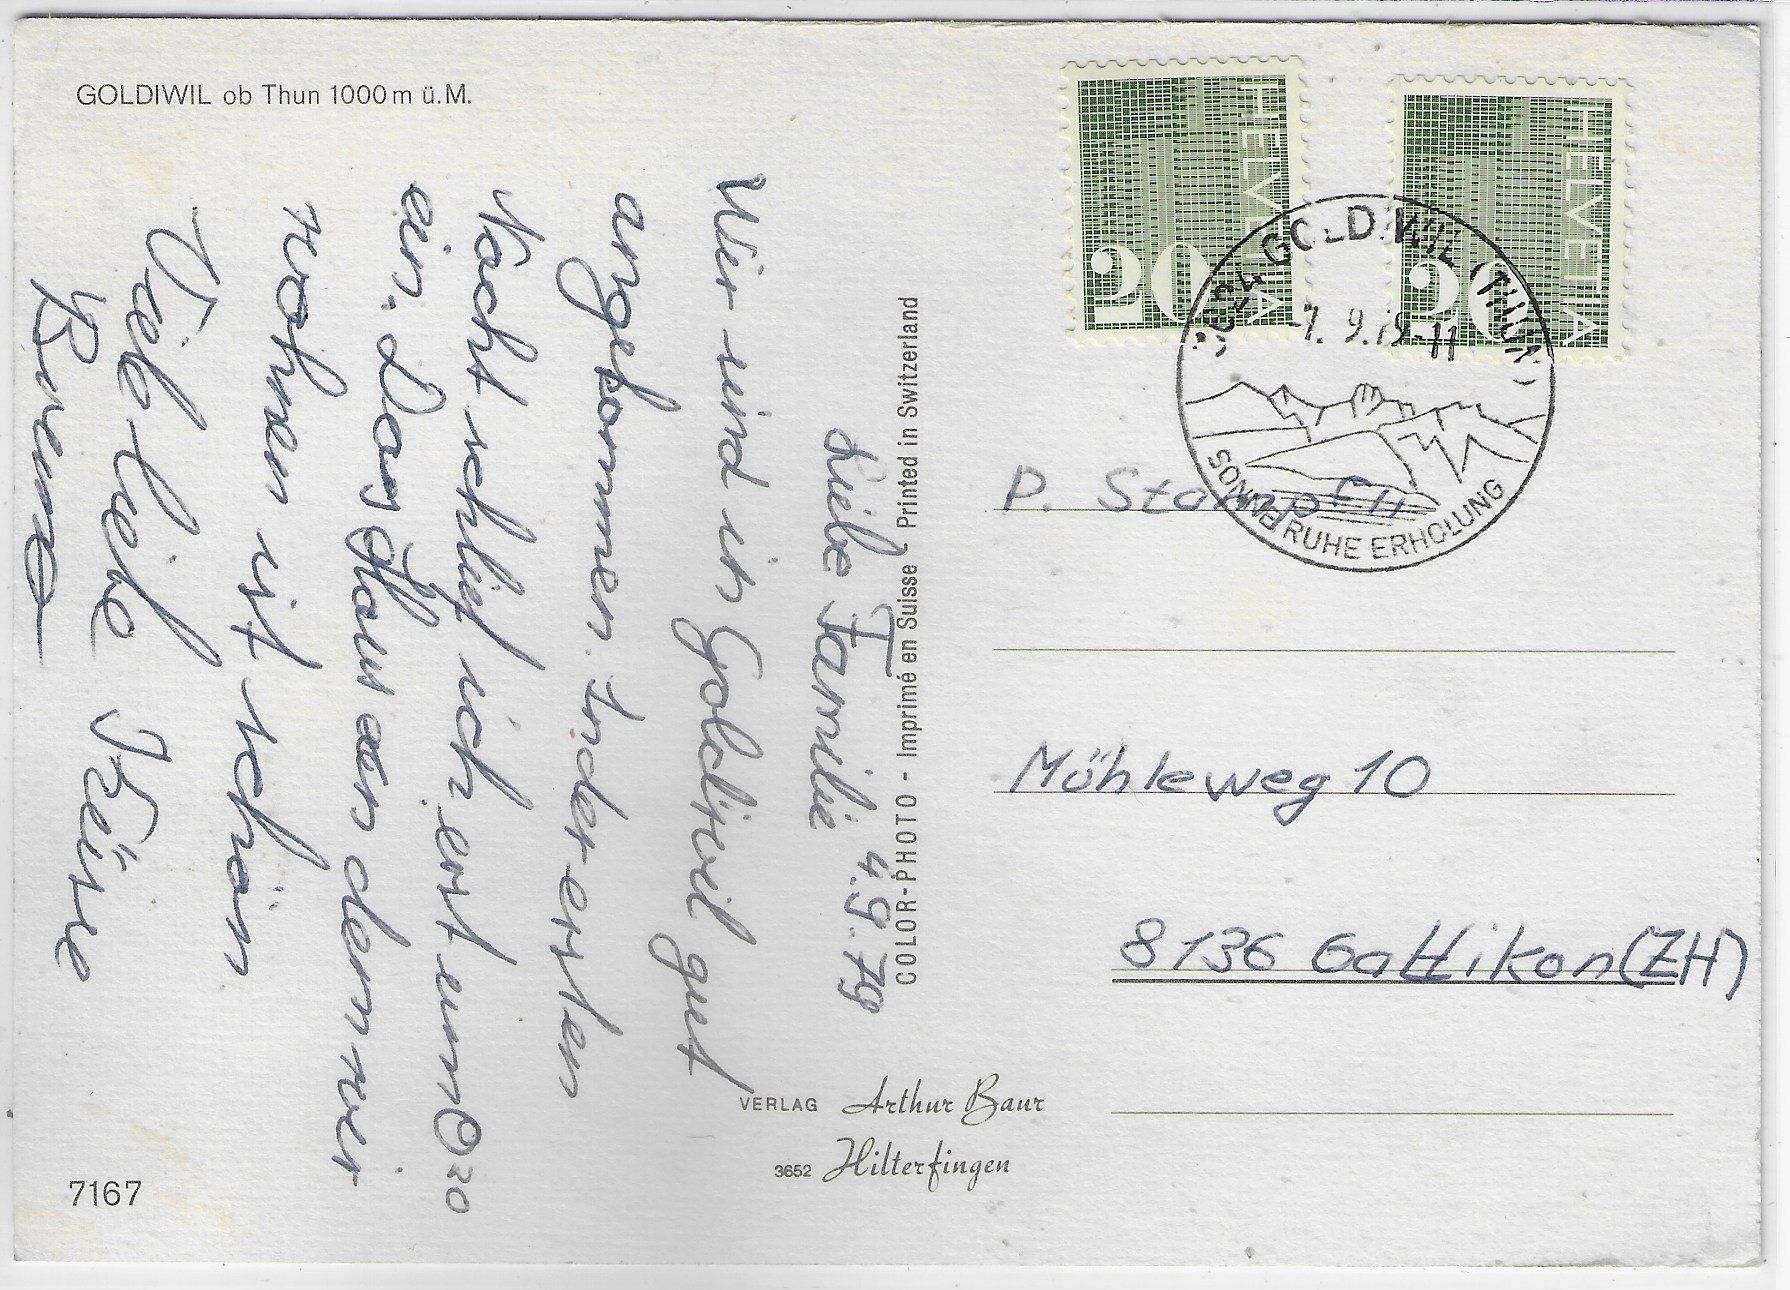 GOLDIWIL ob Thun 1000 m ü.M.
HELVETIA
20
HELVETIA
20
3624 GOLDIWIL (THUN)
-7. 9.79-11
SONNE RUHE ERHOLUNG
4.9.79
Liebe Familie
Wir sind in Goldiwil gut
angekommen. In der ersten
Nacht schlief ich erst um 020
ein. Das Haus
wohnen ist schön
Viele liebe
COLOR-PHOTO - Imprimé en Suisse - Printed in Switzerland
P. Stampfli
Mühleweg 10
8136 Gattikon (ZH)
VERLAG Arthur Baur
3652 Hilterfingen
7167